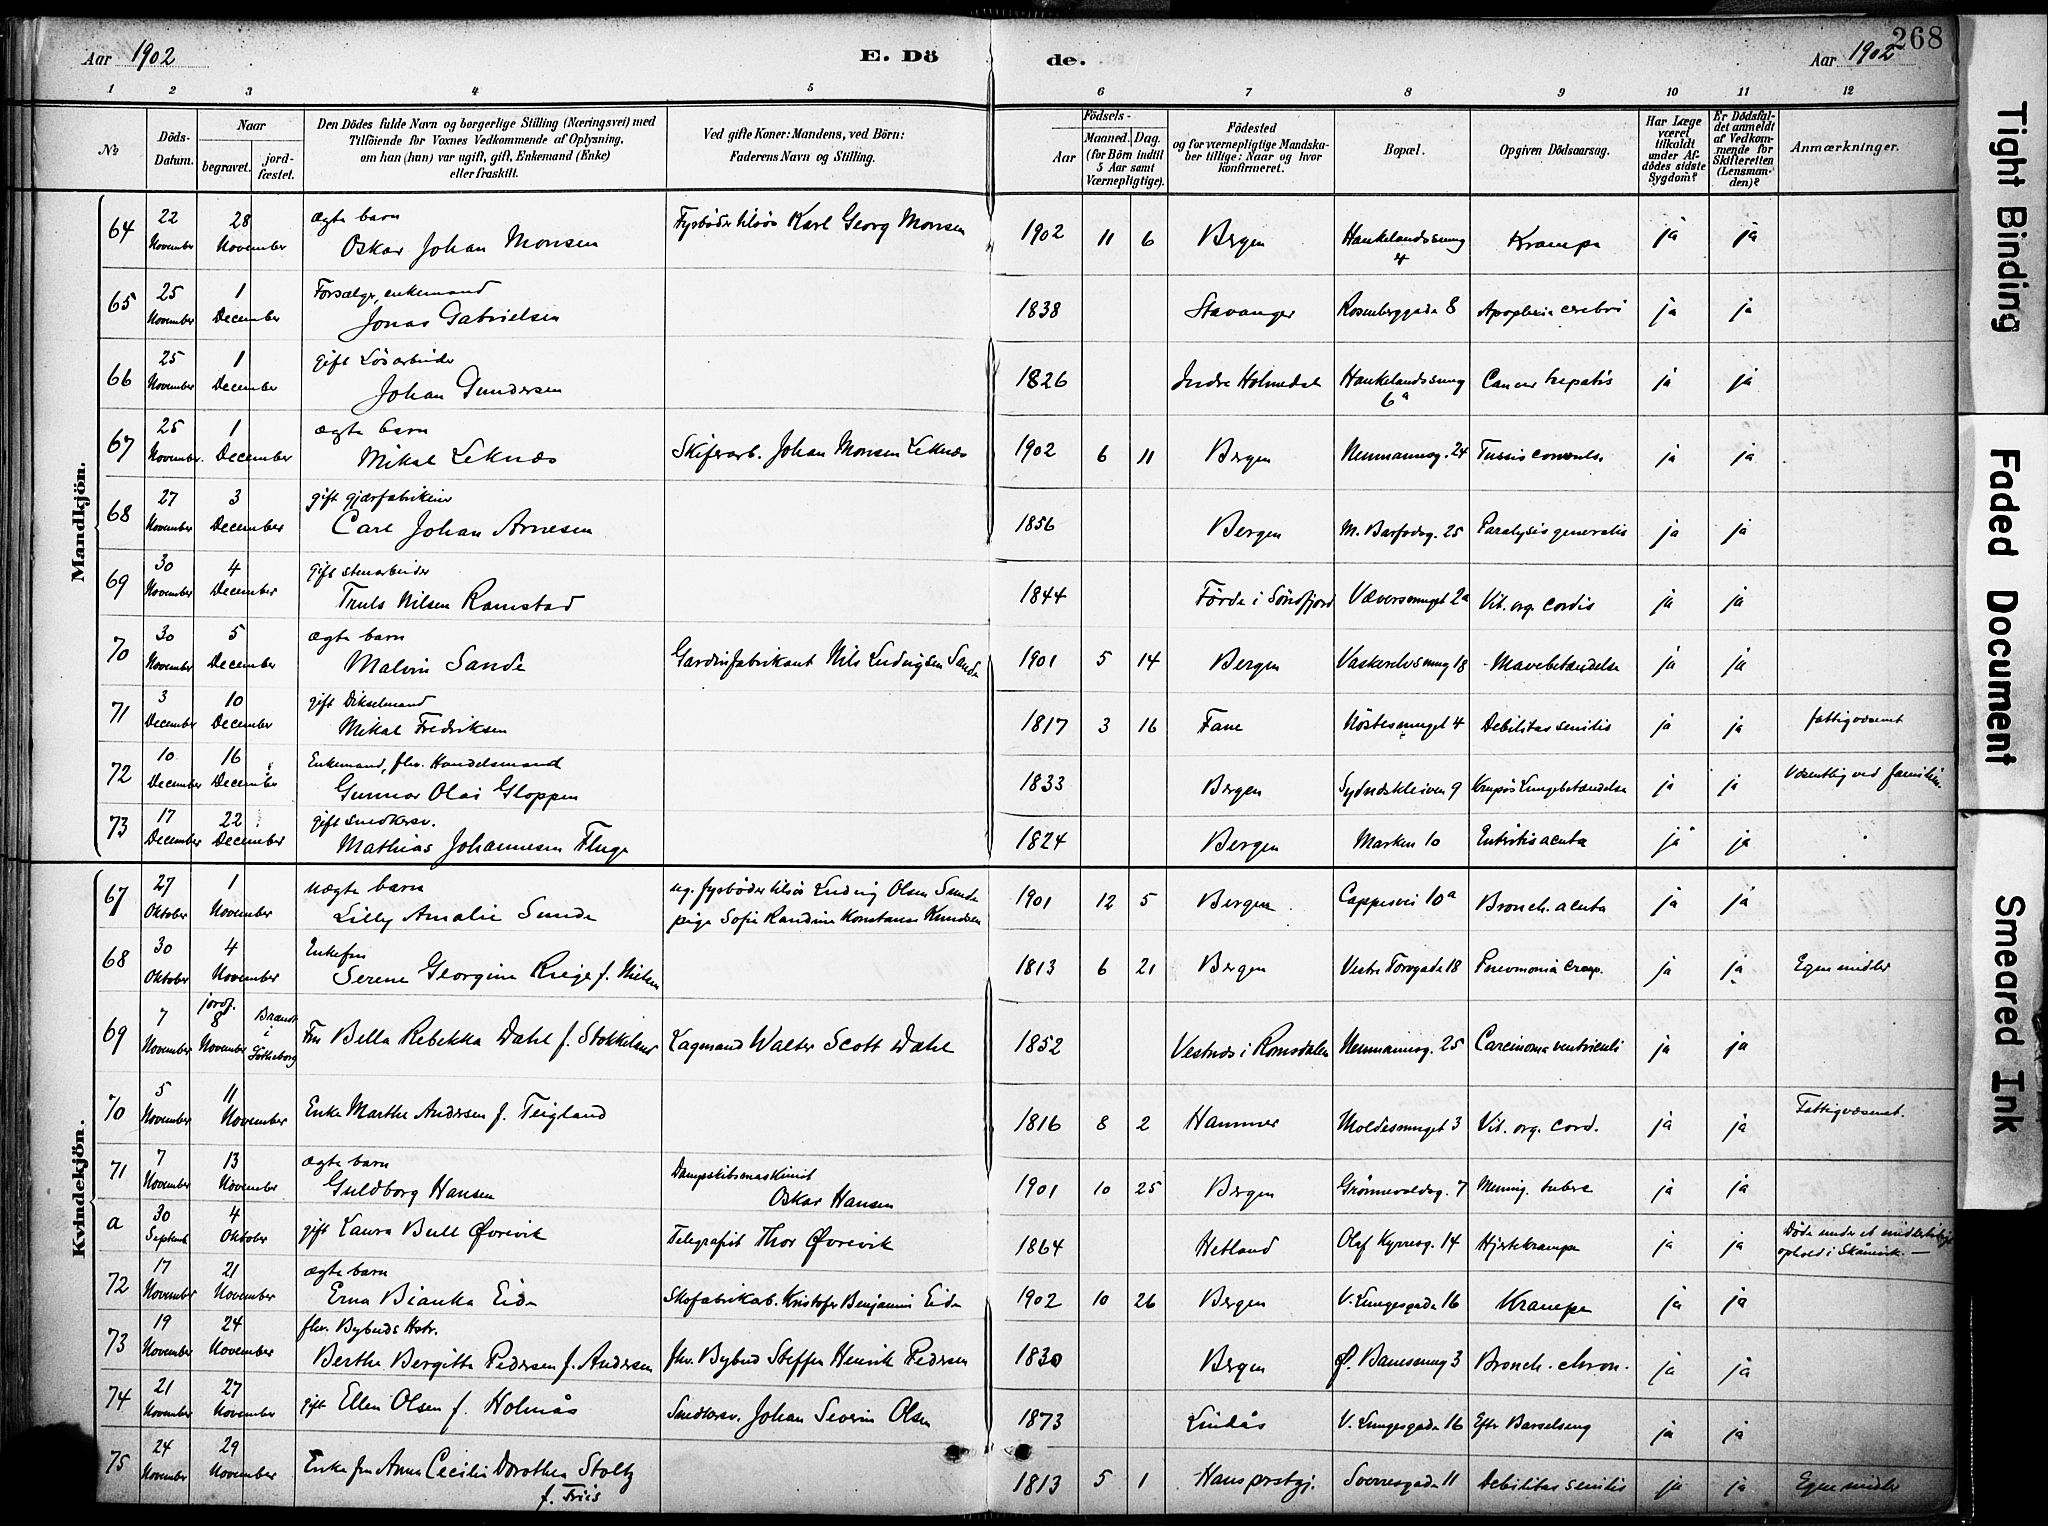 Aar 1902
E. Dö
de.
Aar 1902
268
1 2 3 4 5 6 7 8 9 10 11 12
№
Döds-
Datum.
Naar
begravet.
jord-
fæstet.
Den Dödes fulde Navn og borgerlige Stilling (Næringsvei) med
Tilföiende for Voxnes Vedkommende af Oplysning,
om han (hun) var ugift, gift, Enkemand (Enke)
eller fraskilt.
Ved gifte Koner: Mandens, ved Börn:
Faderens Navn og Stilling.
Födsels-
Aar
Maaned. Dag.
(for Börn indtil
5 Aar samt
Værnepligtige).
Födested
og for værnepligtige Mandska-
ber tillige: Naar og hvor
konfirmeret.
Bopæl.
Opgiven Dödsaarsag.
Har Læge
været
tilkaldt
under Af-
dödes sidste
Sygdom?
Er Dödsfal-
det anmeldt
af Vedkom-
mende for
Skifteretten
(Lensman-
den)?
Anmærkninger.
Mandkjön.
64 22 November 28 November ægte barn
Oskar Johan Monsen Fyrbøder Karl Georg Monsen 1902 11 6 Bergen 4 Krampe ja ja
65 25 November 1 December enkemand
Jonas Gabrielsen 1838 Stavanger Rosenberggade 8 Apoplexia cerebri ja ja
66 25 November 1 December gift Løsarbeider
Johan Gundersen 1826 Indre Holmedal 6a Cancer hepatis ja ja
67 25 November. 1 December ægte barn
Mikal Leknæs Skiferarb. Johan Monsen Leknæs 1902 6 11 Bergen Neumannsg. 24 Tussis convuls. ja ja
68 27 November 3 December gift gjærfabrikeier
Carl Johan Arnesen 1856 Bergen M. Barfodsg. 25 Paralysis generalis ja ja
69 30 November 4 December gift stenarbeider
Truls Nilsen Ramstad 1844 Førde i Søndfjord Væversmuget 2a Vit. org. cordis ja ja
70 30 November 5 December ægte barn
Malvin Sande Gardinfabrikant Nils Ludvigsen Sande 1901 5 14 Bergen 18 Mavebetændelse ja ja
71 3 December 10 December gift
Mikal Fredriksen 1817 3 16 Fane Nøstesmuget 4 Debilitas senilis ja ja fattigvæsenet
72 10 December 16 December Enkemand, fhv. Handelsmand
Gunnar Olai Gloppen 1833 Bergen Sydneskleiven 9 Krupøs Lungebetændelse ja ja Væsentlig ved familien
73 17 December 22 December gift snedkersv.
Mathias Johannesen Fluge 1824 Bergen Marken 10 Enteritis acuta ja ja
Kvindekjön.
67 27 Oktober 1 November uægte barn
Lilly Amalie Sunde ug. fyrbøder Ludvig Olsen Sunde
pige Sofie Randine Konstanse Knudsen 1901 12 5 Bergen Cappesvei 10a Bronch. acuta ja ja
68 30 Oktober 4 November Enkefru
Serene Georgine Riege f. Nielsen 1813 6 21 Bergen Vestre Torvgade 18 Pneumonia croup. ja ja Egne midler
69 7 November jordf. 8 November Brændt i Gøtheborg Fru Bella Rebekka Dahl f. Stokkeland Lagmand Walter Scott Dahl 1852 Vestnæs i Romsdalen Neumannsg. 25 Carcinoma ventriculi ja ja
70 5 November 11 November Enke Marthe Andersen f. Teigland 1816 8 2 Hammer Moldesmuget 3 Vit. org. cord. ja ja Fattigvæsenet.
71 7 November 13 November ægte barn
Guldborg Hansen Dampskibsmaskinist
Oskar Hansen 1901 10 25 Bergen Grønnevoldsg. 7 Mening. tuberc ja ja
a 30 Septemb 4 Oktober gift Laura Bull Øvrevik Telegrafist Thor Øvrevik 1864 Hetland Olaf Kyrresg. 14 Hjertekrampe ja ja Døde under et midlertidigt
ophold i Skånevik. —
72 17 November 21 November ægte barn
Erna Bianka Eide Skofabrikarb. Kristofer Benjamin Eide 1902 10 26 Bergen V. Lungegade 16 Krampe ja ja
73 19 November 24 November fhv. Bybuds Hstr.
Berthe Bergitte Pedersen f. Andersen fhv. Bybud Steffen Henrik Pedersen 1830 Bergen Ø. 3 Bronch. chron. ja ja
74 21 November 27 November gift Ellen Olsen f. Holmås Snedkersv. Johan Severin Olsen 1873 Lindås V. Lungegade 16 Efter Barselseng ja ja
75 24 November 29 November Enkefru Anna Cecilie Dorothea Stoltz
f. Friis 1813 5 1 Hans prstgj. Sverresgade 11 Debilitas senilis ja ja Egne midler
Tight Binding
Faded Document
Smeared Ink